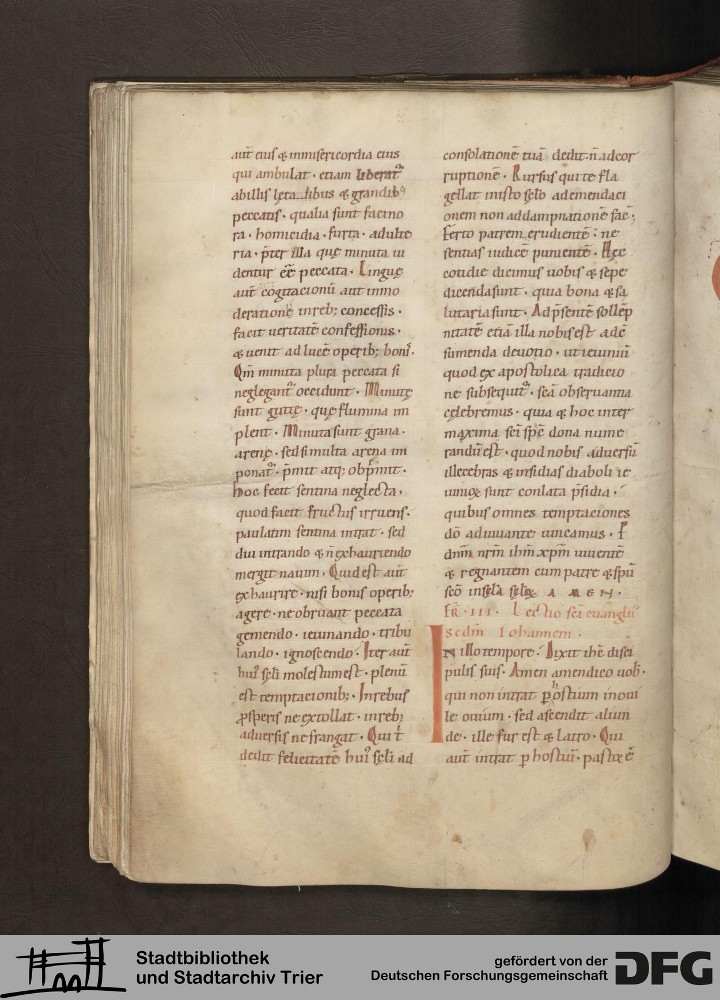 aut̄ eius & inmisericordia eius
qui ambulat · etiam liberat᷑
abillis lętalibus & grandib᷒
peccatis · qualia sunt facino
ra · homicidia · furta · adulte
ria · p̄ter illa quę minuta ui
dentur eē peccata · Linguę
aut̄ cogitacionū aut inmo
deratione inreb; concessis ·
facit ueritatē confessionis ·
& uenit adlucē operib; bonis ·
Qm̄ minuta plura peccata si
neglegant᷑ occidunt · Minutę
sunt guttę · quę flumina im
plent · Minuta sunt grana ·
arenę · sed si multa arena im
ponat᷑ · p̄mit atq; obp̄mit ·
hoc fecit sentina neglecta ·
quod facit fructus irruens ·
paulatim sentina intrat · sed
diu intrando & n̄ exhauriendo
mergit nauim · Quid est aut̄
exhaurire · nisi bonis operib;
agere · ne obruant peccata
gemendo · ieiunando · tribu
lando · ignoscendo · Iter aut̄
hui᷒ sęli molestum est · plenū
est temptacionib; · Inrebus
ꝓsperis ne extollat · inreb;
aduersis ne frangat · Qui t̄
dedit felicitatē hui᷒ sęli ad
consolationē tuā dedit · n̄ adcor
ruptionē · Rursus qui te fla
gellat in isto sęlo ad emendaci
onem non ad dampnationē faē ·
Ferto patrem erudientē · ne
sentias iudicē punientē · Hęc
cotidie dicimus uobis & sepe
dicenda sunt · quia bona & sa
lutaria sunt · Ad p̄sentē sollēp
nitatē etiā illa nobis est adē
sumenda deuotio · ut ieiuniū
quod ex apostolica tradicio
ne subsequit᷑ · sc̄a obseruantia
cęlebremus · quia & hoc inter
maxima sc̄i sp̄c dona nume
randū est · quod nobis aduersū
illecebras & insidias diaboli ie
iunioꝝ sunt conlata p̄sidia ·
quibus omnes temptaciones
dō adiuuante uincamus · P
dn̄m nr̄m ih̄m xp̄m uiuentē
& regnantem cum patre & sp̄u
sc̄o in sęla sęloꝝ AMEN ·
FR̄ · III · Lectio sc̄i euangłii
scdm̄ Iohannem ·
IN illo tempore · Dixit ih̄c disci
pulis suis · Amen amen dico uob᷒ ·
qui non intrat ꝑ hostium in oui
le ouium · sed ascendit aliun
de · ille fur est & latro · Qui
aut̄ intrat ꝑ hostiū · pastor ē
Stadtbibliothek
und Stadtarchiv Trier
gefördert von der
Deutschen Forschungsgemeinschaft
DFG